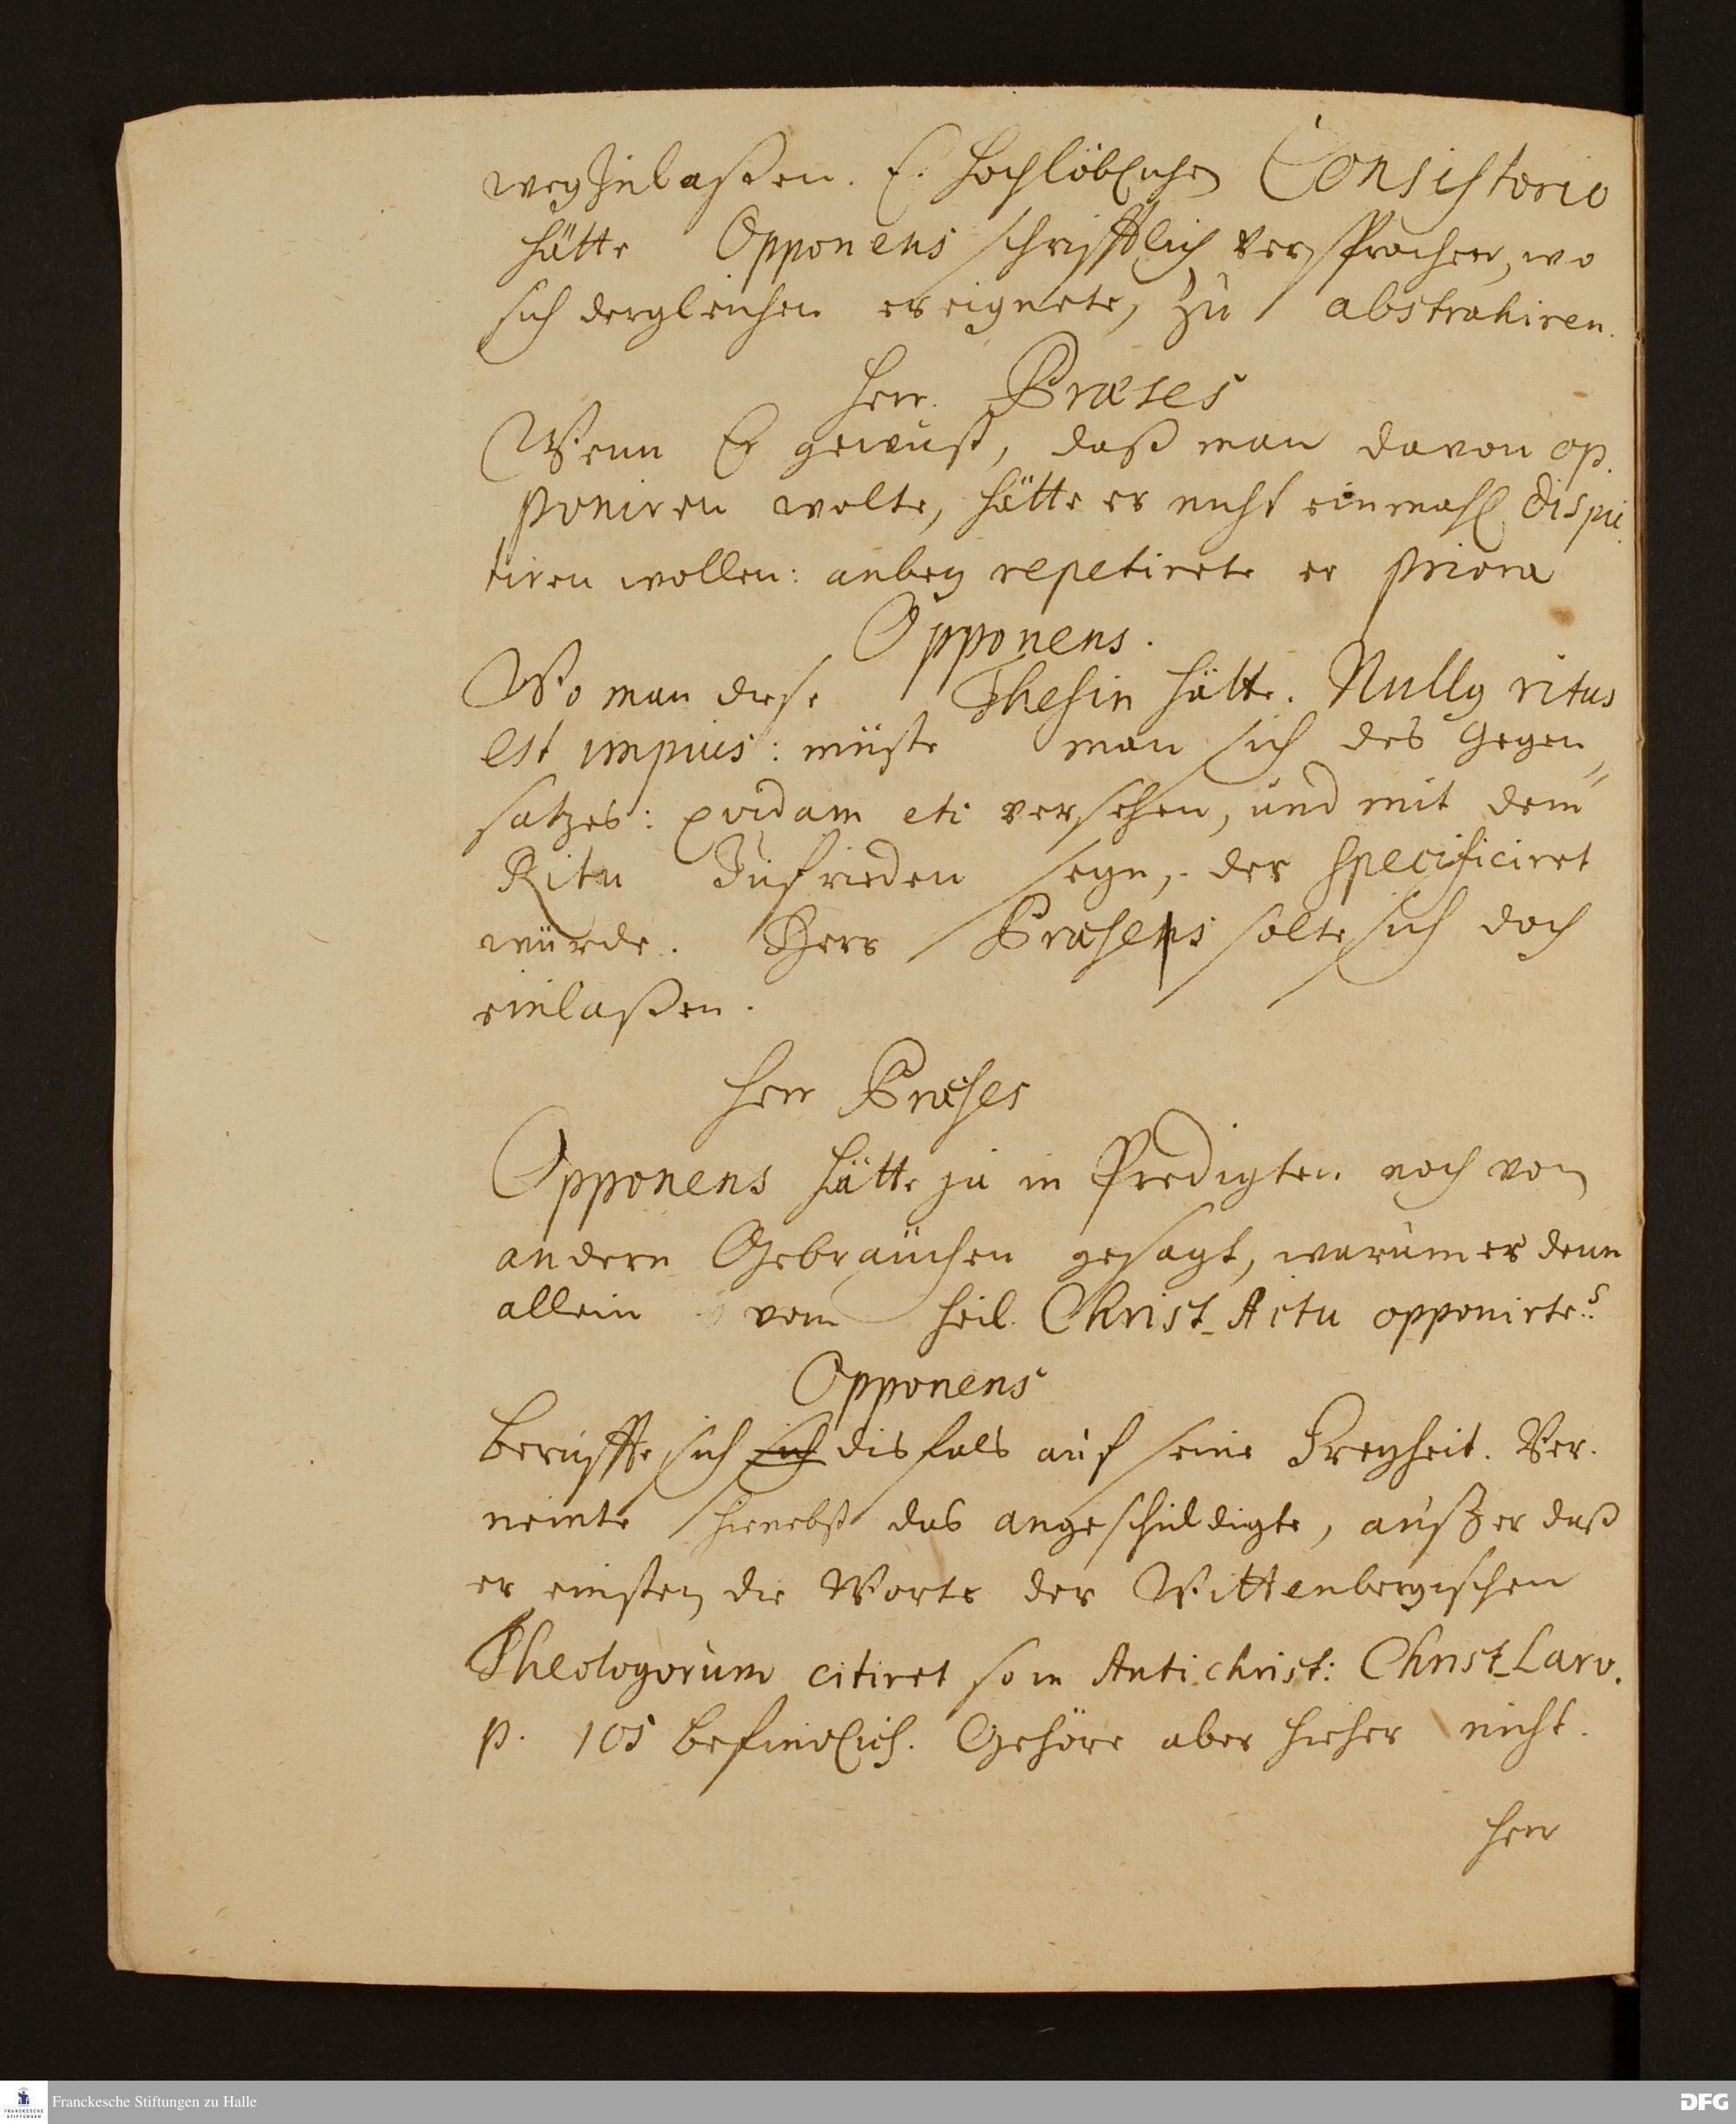 wegzulaßen. E. Hochlöblichen Consistorio
hätte Opponens schrifftlich versprochen, wo
sich dergleichen ereignete, zu abstrahiren.
Herr. Præses
Wenn Er gewust, daß man davon op.
poniren wolte, hätte er nicht einmahl dispu.
tiren wollen: anbey repetirete er priora
Opponens.
Wo man diese Thesin hätte. Nullg ritus
est impius: müste man sich des Gegen„
satzes: qvidam etc versehen, und mit dem
Ritu Zufrieden seyn, der specificiret
würde. Herr Præsens solte sich doch
einlaßen.
Herr Præses
Opponens hätte ja in Predigten noch von
andern Gebräuchen gesagt, warum er denn
allein vom Heil. Christ_Actu opponirte?
Opponens
Beruffte sich sich disfals auf seine Freyheit. Ver.
neinte hienebst das angeschuldigte, außer daß
er einsten die Worte der Wittenbergischen
Theologorum citiret so in Antichrist: Christ_Larv.
p. 105 befindlich. Gehöre aber hieher nicht.
Herr
Franckesche Stiftungen zu Halle
FRANCKESCHE STIFTUNGEN
DFG